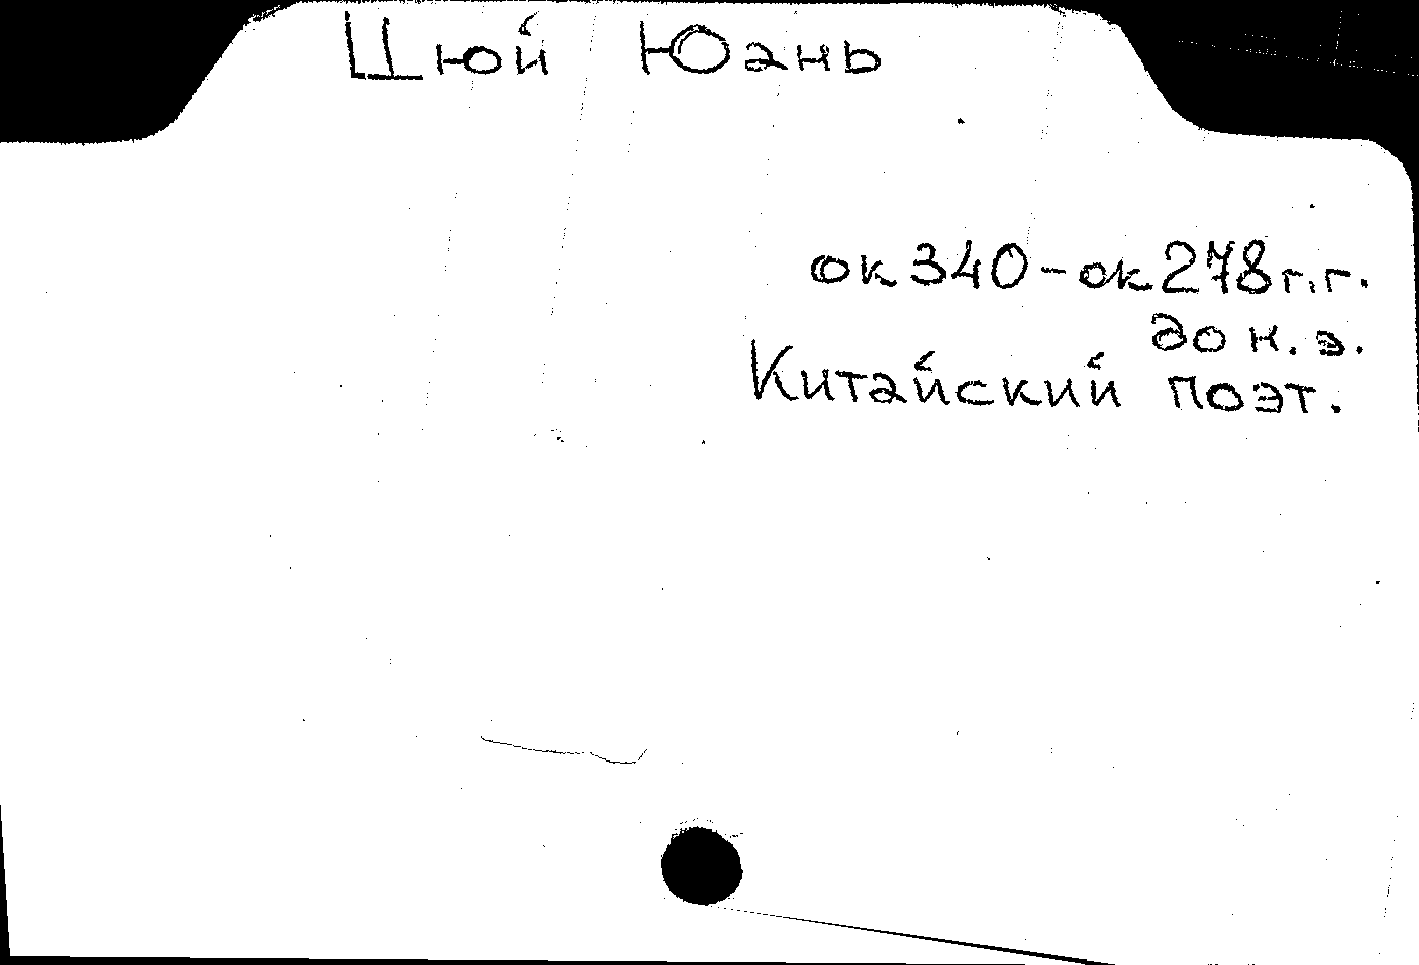 Цюй Юань
ок 340-ок 278 г.г.
до н. э.
Китайский поэт.